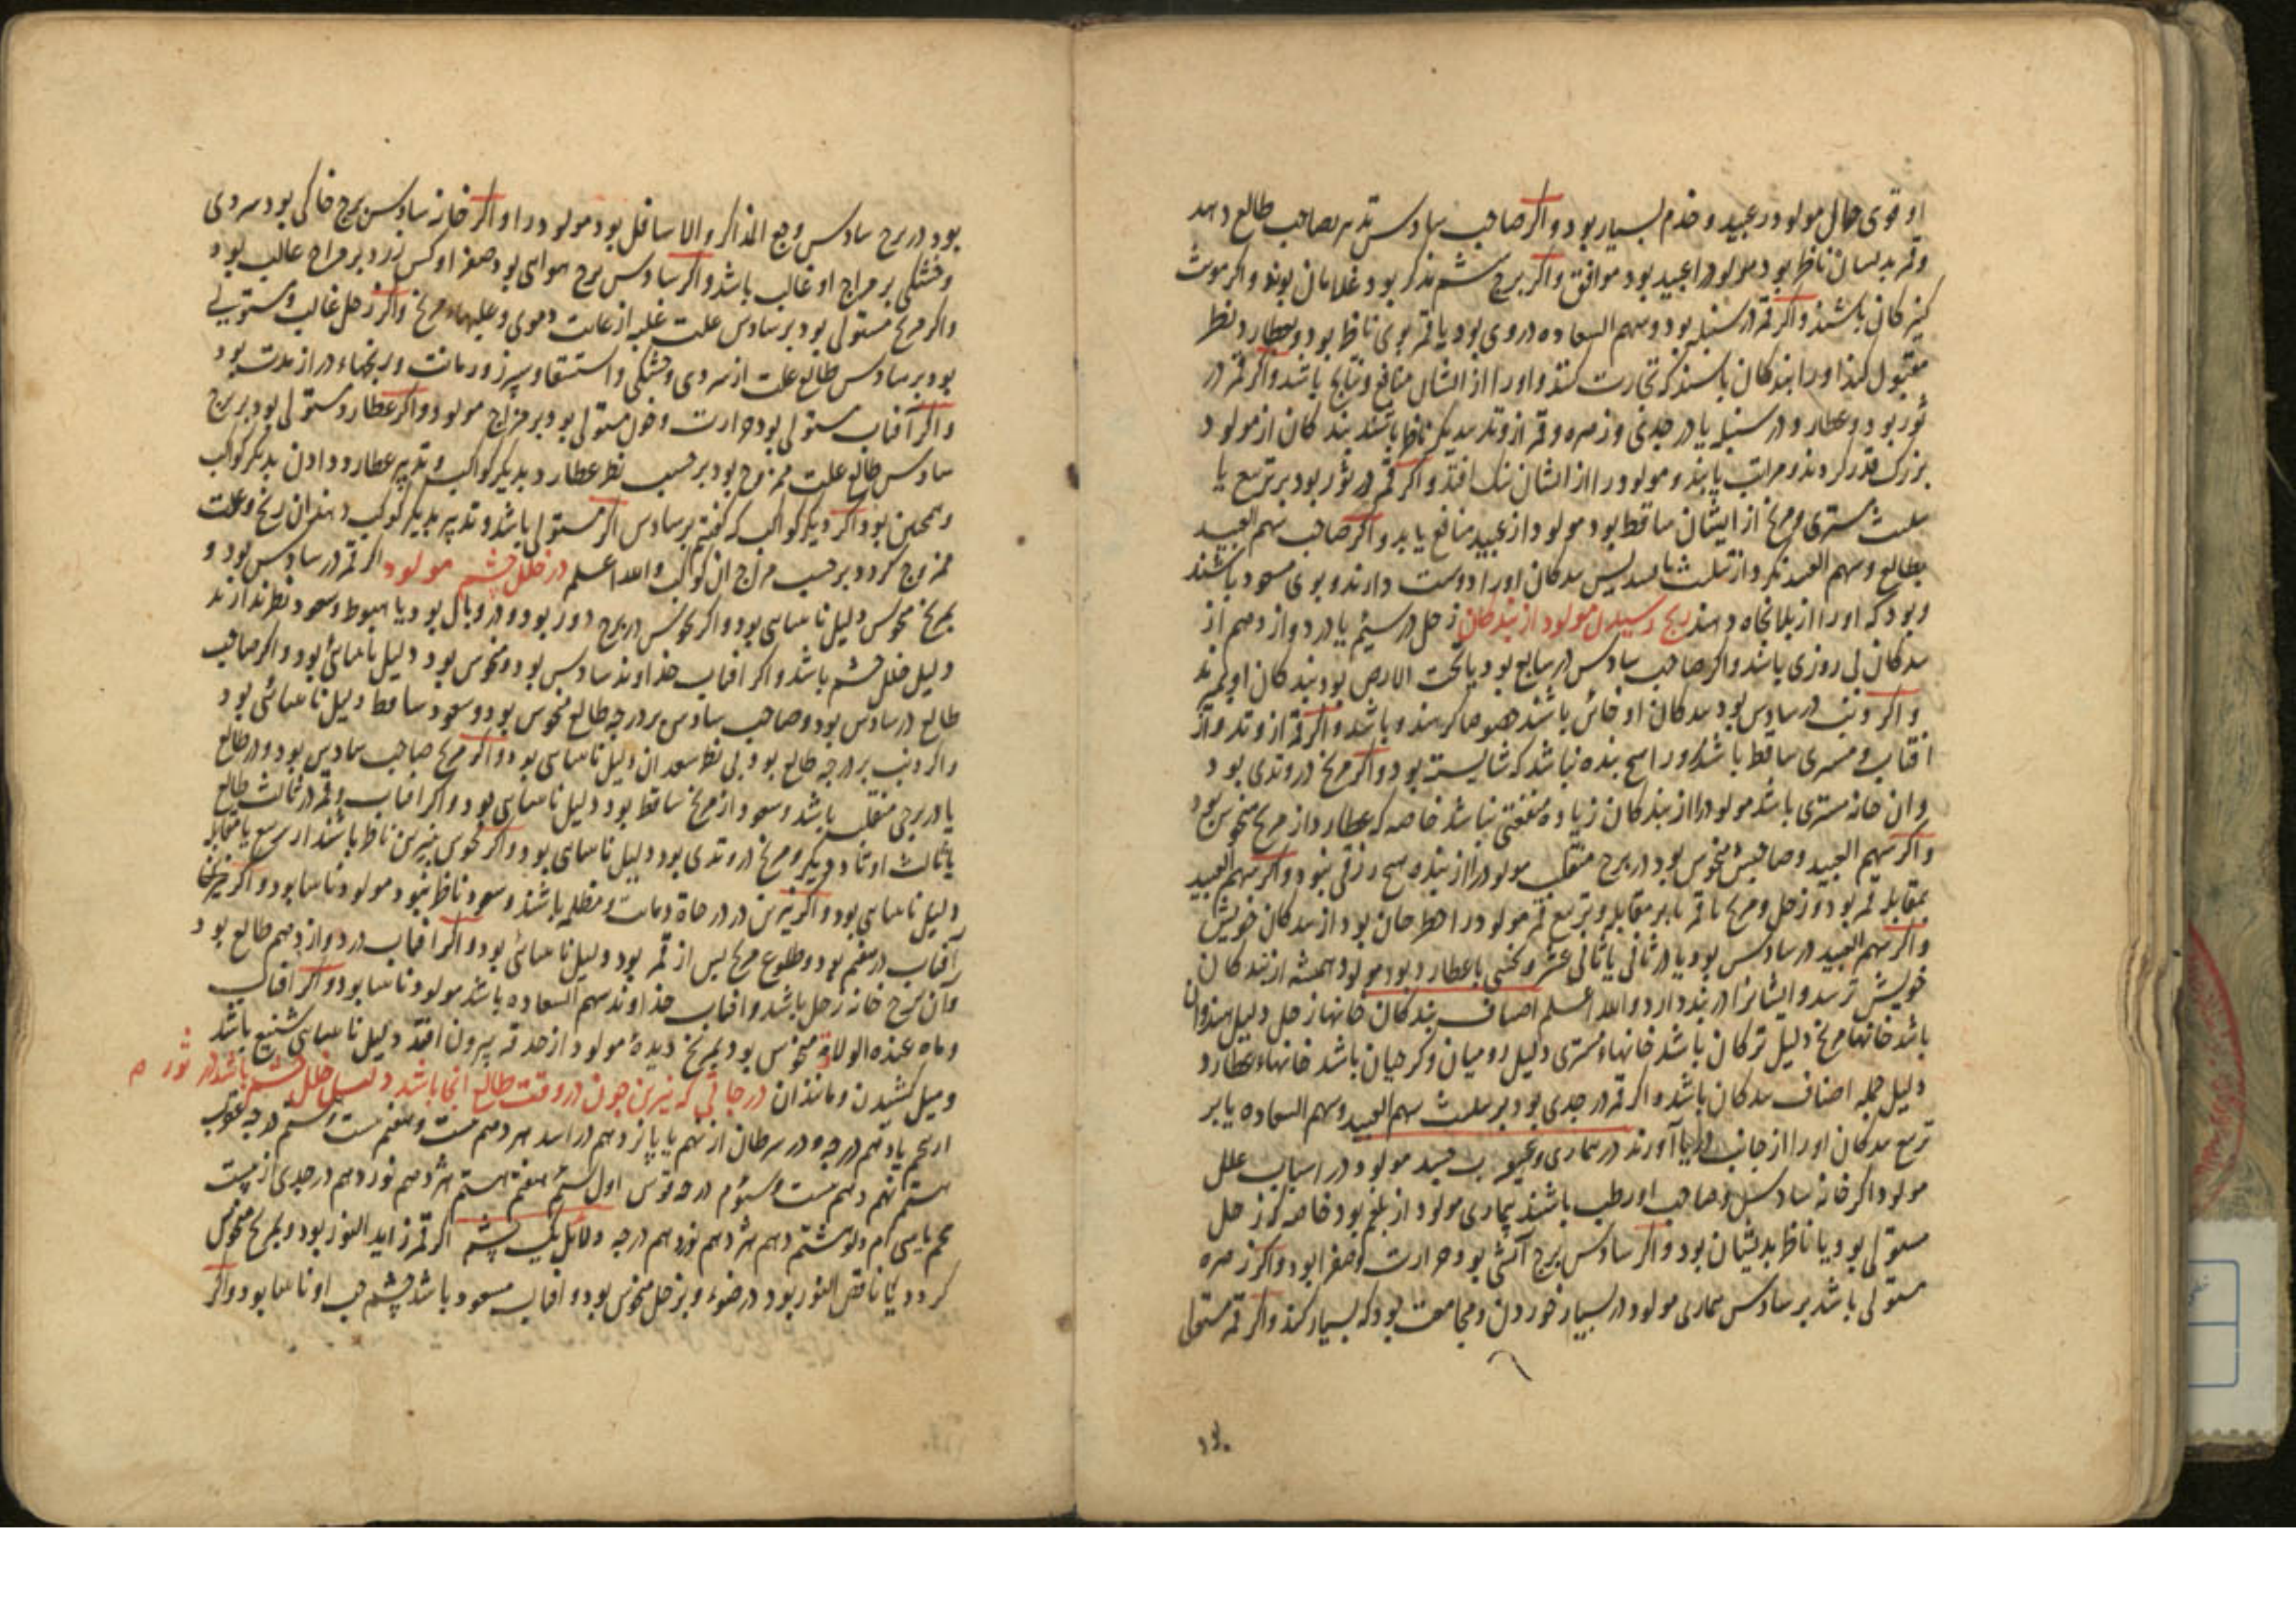 او قوی حال مولود در عبید و خدم بسیار بود و اکر صاحب سادس تدبیر بصاحب طالع دهد
و قمر بدیشان ناظر بود مولود را عبید بود موافق و اکر برج ششم مذکر بود غلامان بوند و اکر مونث
کنیزکان باشند و اکر قمر در سنبله بود و سهم السعاده در وی بود یا قمر بوی ناظر بود و بعطارد نظر
مقبول کند او را بندکان باشند که تجارت کنند و او را از ایشان منافع و نتایج باشد و اکر قمر در
ثور بود و عطارد در سنبله یا در جدی و زهره و قمر از وتد بدیکر ناظر باشند بندکان از مولود
بزرک قدر کردند و مراتب یابند و مولود را از ایشان نیک افتد و اکر قمر در ثور بود بر تربیع یا
تثلیث مشتری و مریخ از ایشان ساقط بود مولود از عبید منافع یابد و اکر صاحب سهم العبید
بطالع و سهم العبید نکرد از تثلیث یا تسدیس بندکان او را دوست دارند و بوی مسعود باشند
و بود که او را از بلا نجاه دهند رنج رسیدن مولود از بندکان زحل در سیم یا در دوازدهم از
بندکان بی روزی باشد و اکر صاحب سادس در سابع بود یا تحت الارض بود بندکان او بمیرند
و اکر ذنب در سادس بود بندکان او خائن باشند خصوصا که هندو باشد و اکر قمر از وتد و از
افتاب و مشتری ساقط باشد او را هیچ بنده نباشد که شایسته بود و اکر مریخ در وتدی بود
و ان خانه مشتری باشد مولود را از بندکان زیاده منفعتی نباشد خاصه که عطارد از مریخ منحوس بود
و اکر سهم العبید و صاحبش منحوس بود در برج منقلب مولود را از بنده هیچ رزقی نبود و اکر سهم العبید
بمقابله قمر بود و زحل و مریخ با قمر یا بر مقابله و تربیع قمر مولود را خطر جان بود از بندکان خویش
و اکر سهم العبید در سادس بود یا در ثانی یا ثانی عشر و نحسی با عطارد بود مولود همیشه از بندکان
خویش ترسد و ایشانرا در بند دارد و الله اعلم اصناف بندکان خانهاء زحل دلیل هندوان
باشد خانهاء مریخ دلیل ترکان باشد خانهاء مشتری دلیل رومیان و کرجیان باشد خانهاء عطارد
دلیل جمله اصناف بندکان باشد و اکر قمر در جدی بود بر تثلیث سهم العبید و سهم السعاده یا بر
تربیع بندکان او را از جانب دریا آورند در بیماری و عیوب جسد مولود در اسباب علل
مولود اکر خانه سادس و صاحب او رطب باشند بیماری مولود از بلغم بود خاصه که زحل
مستولی بود یا ناظر بدیشان بود و اکر سادس برج آتشی بود حرارت و صفرا بود و اکر زهره
مستولی باشد بر سادس بیماری مولود در بسیار خوردن و مجامعت بود که بسیار کند و اکر قمر مستولی
بود در برج سادس وجع المذاکر والاسافل بود مولود را و اکر خانه سادس برج خاکی بود سردی
و خشکی بر مزاج او غالب باشد و اکر سادس برج هوایی بود صفرا و کش زرد بر مزاج غالب بود
و اکر مریخ مستولی بود بر سادس علت غلبه از علت دموی و مریخ و اکر زحل غالب و مستولی
بود بر سادس طالع علت از سردی و خشکی و استسقا و سپرز و زمانت و رنجهاء دراز مدت بود
و اکر آفتاب مستولی بود حرارت و خون مستولی بود بر مزاج مولود و اکر عطارد مستولی بود بر برج
سادس طالع علت ممزوج بود بر حسب نظر عطارد بدیکر کواکب و تدبیر عطارد دادن بدیکر کواکب
و همچنین بود اکر دیکر کواکب که کفتیم بر سادس اکر مستولی باشد و تدبیر بدیکر کوکب دهند ان رنج و علت
ممزوج کردد بر حسب مزاج ان کواکب والله اعلم در خلل چشم مولود اکر قمر در سادس بود و
بمریخ منحوس دلیل نابینایی بود و اکر نحوس در برج دور بود و در وبال بود یا هبوط و سعود نظر ندارند
دلیل خلل چشم باشد و اکر افتاب خداوند سادس بود و منحوس بود دلیل نابینائی بود و اکر صاحب
طالع در سادس بود و صاحب سادس بر درجه طالع منحوس بود و سعود ساقط دلیل نابینائی بود
و اکر ذنب بر درجه طالع بود بی نظر سعد ان دلیل نابینایی بود و اکر مریخ صاحب سادس بود و در طالع
یا در برجی منقلب باشد و سعود از مریخ ساقط بود دلیل نابینایی بود و اکر افتاب و قمر در ثالث طالع
یا ثالث اوتاد دیکر و مریخ در وتدی بود دلیل نابینایی بود و اکر نحوس بنیرین ناظر باشند از تربیع یا مقابله
دلیل نابینایی بود و اکر نیرین در درجات و مظلمه باشند و سعود ناظر نبود مولود نابینا بود و اکر
آفتاب در هفتم بود و طلوع مریخ پس از قمر بود دلیل نابینائی بود و اکر افتاب در دوازدهم طالع بود
و ان برج خانه زحل باشد و افتاب خداوند سهم السعاده باشد مولود نابینا بود و اکر افتاب
و ماه عند الولادة منحوس بود بمریخ دیدهٔ مولود از حدقه بیرون افتد دلیل نابینایی شنیع باشد
و میل کشیدن و مانند ان در جائی که نیرین چون در وقت طالع انجا باشد دلیل خلل چشم باشد در ثور ه
از پنجم یا دهم درجه و در سرطان از نهم یا پانزدهم در اسد هردهم بیست و هفتم بیست و هشتم درجه عقرب
هشتم نهم دهم بیست و سیوم درجه قوس اول ششم هفتم هشتم هژدهم نوزدهم در جدی از بیست
پنجم یا سی ام دلو هشتم دهم هژدهم نوزدهم درجه دلائل یک چشم اکر قمر زاید النور بود و بمریخ منحوس
کردد یا ناقص النور بود در ضوء و بزحل منحوس بود و افتاب مسعود باشد چشم چپ او نابینا بود و اکر